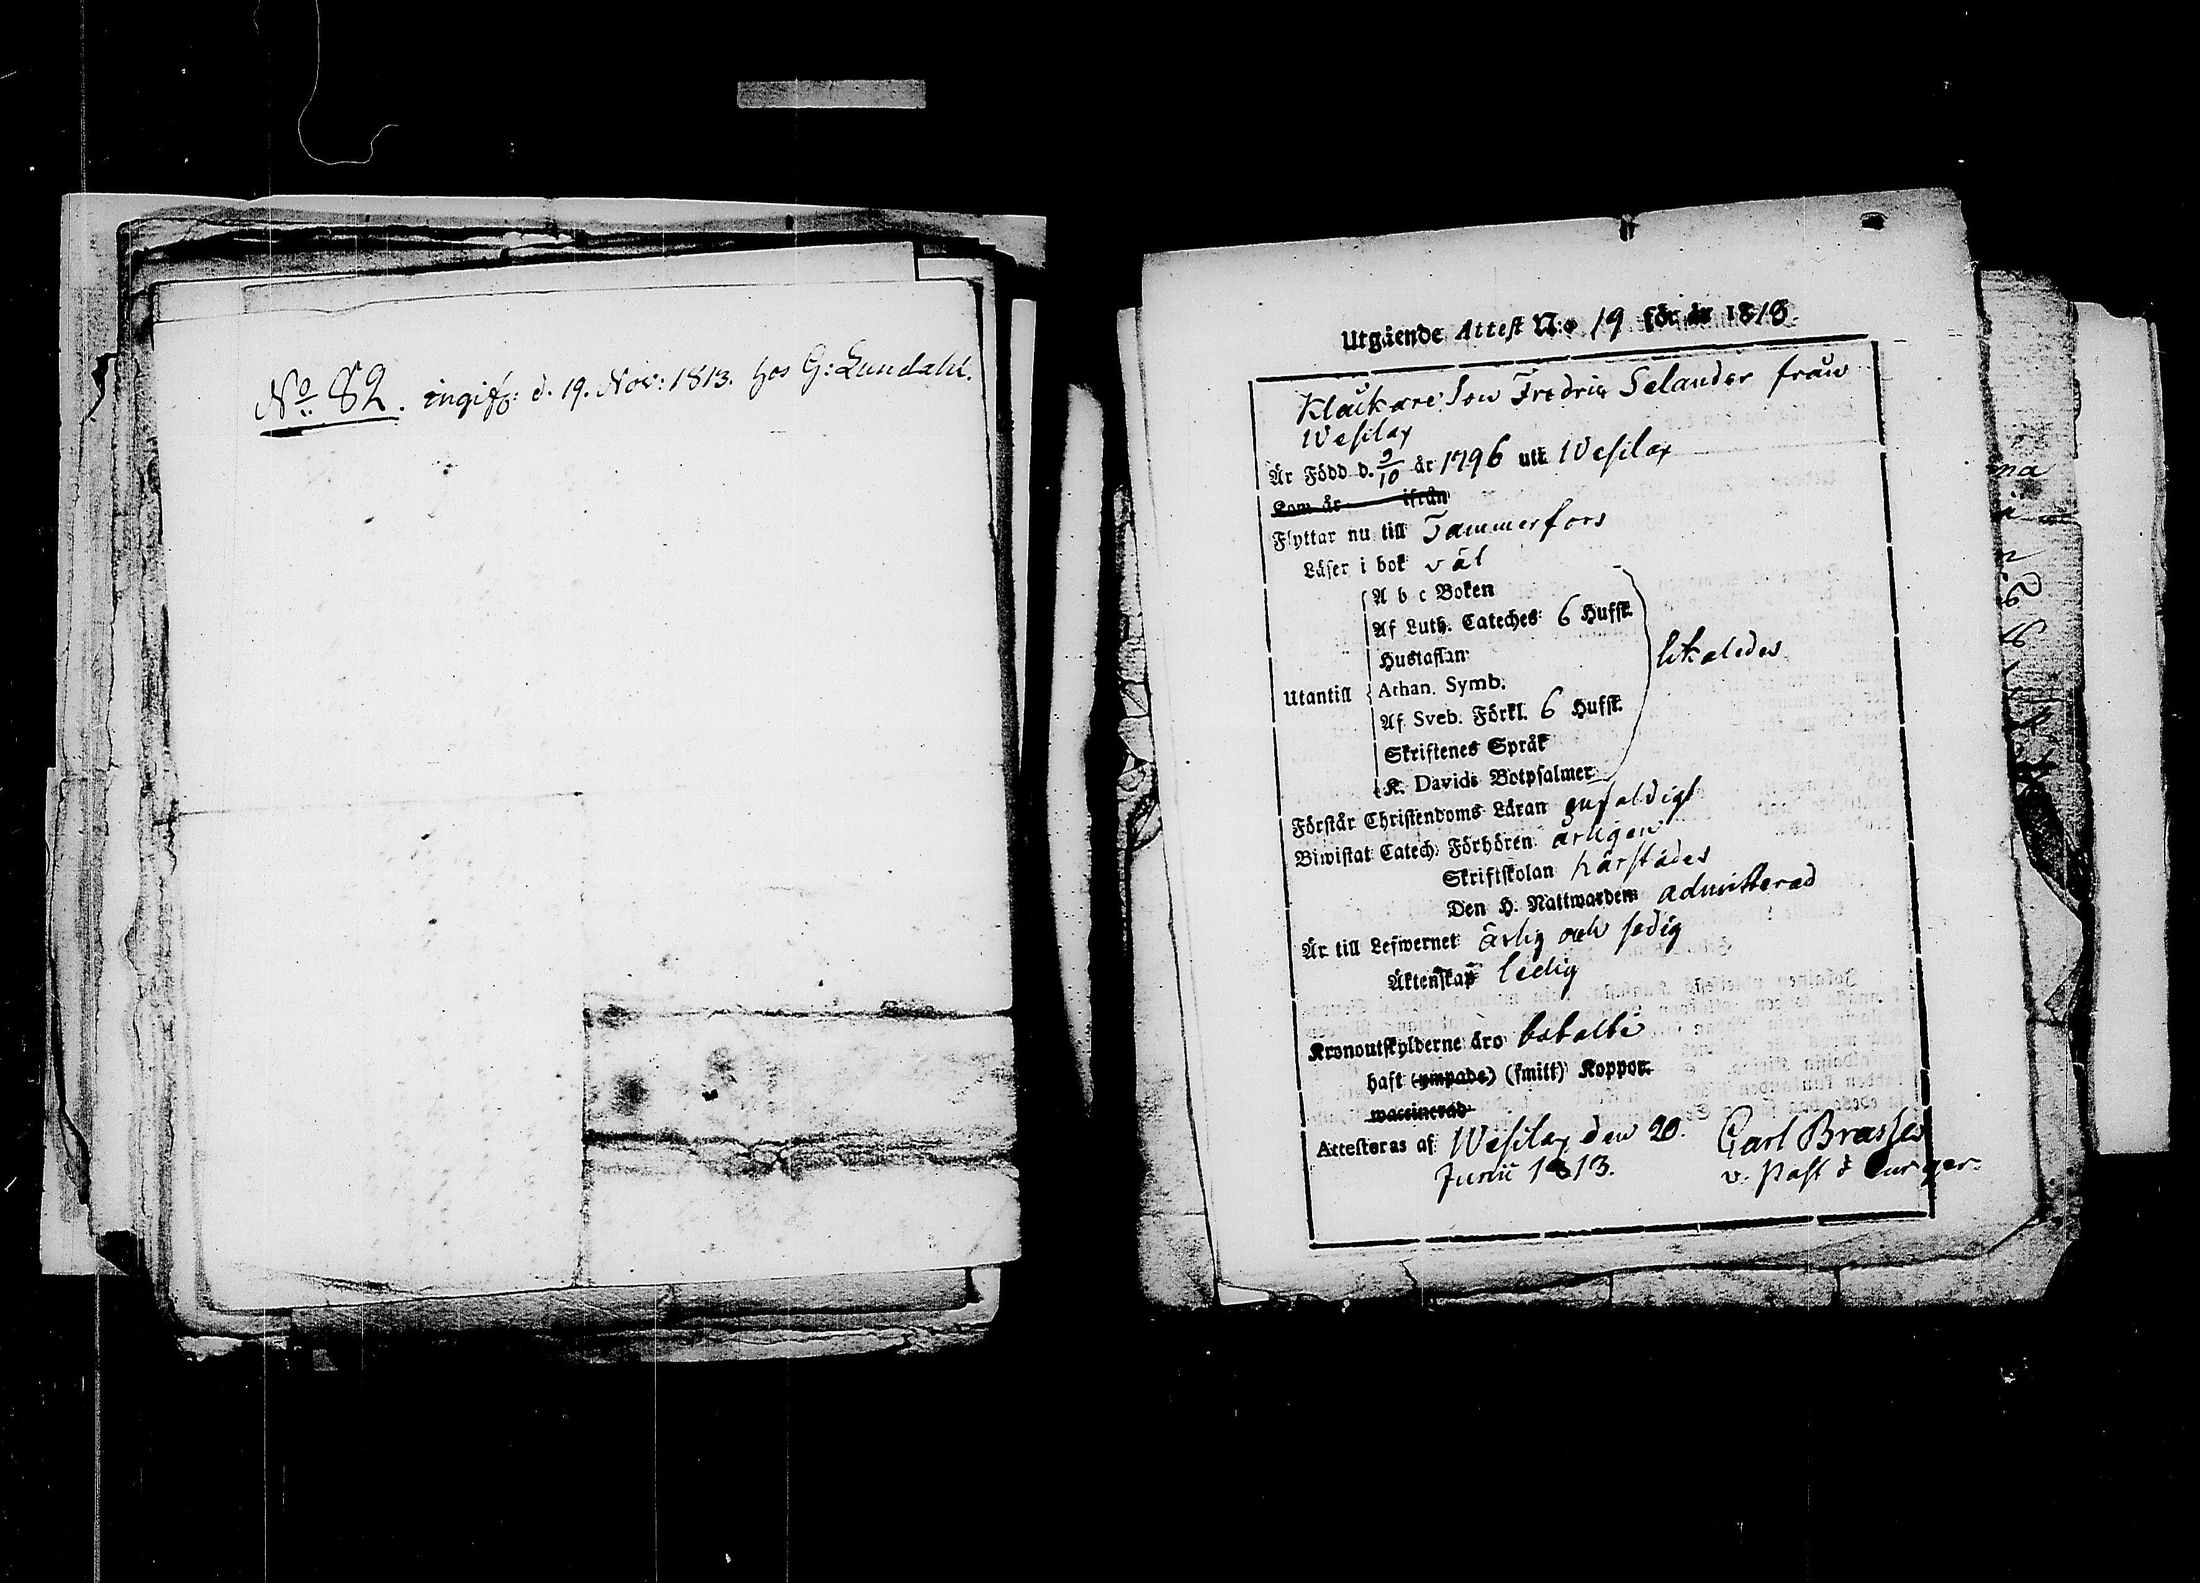 No 82. ingifv: d. 19. Nov: 1813. hos G: Lundahl.
Utgående Attest N:o 19 för år 1813.
Klåckare Son Fredric Selander fråu
Wesilax
Är Född d. 9/10 år 1796 uti Wesilax
Kom år ifrån
Flyttar nu till Tammerfors
Läser i bok väl
A b c Boken
Af Luth. Cateches 6 Hufst.
Hustaflan
Utantill Athan. Symb.
likaledes
Af Sveb. Förkl. 6 Hufst.
Skriftenes Språk
K. Davids Botpsalmer
Förstår Christendoms Läran enfaldigt
Biwistat Catech. Förhören årligen
Skriftskolan härstädes
Den H. Nattwarden admitterad
Är till Lefwernet ärlig och sedig
Äktenskap ledig
Kronoutskylderne äro betalte
haft (ympade) (smitt) Koppor.
waccinerad
Attesteras af Wesilax den 20. Carl Brasse
Junii 1813. v. Past